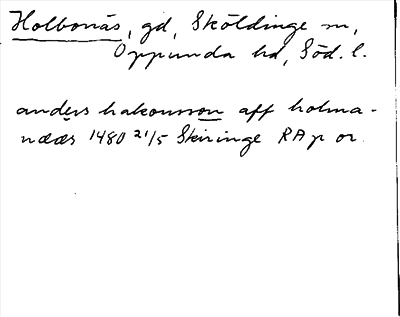 Holbonäs, gd, Sköldinge sn,
Oppunda hd, Söd. l.
anders hakonsson aff holma-
nææs 1480 21/5 Skiringe RAp or.